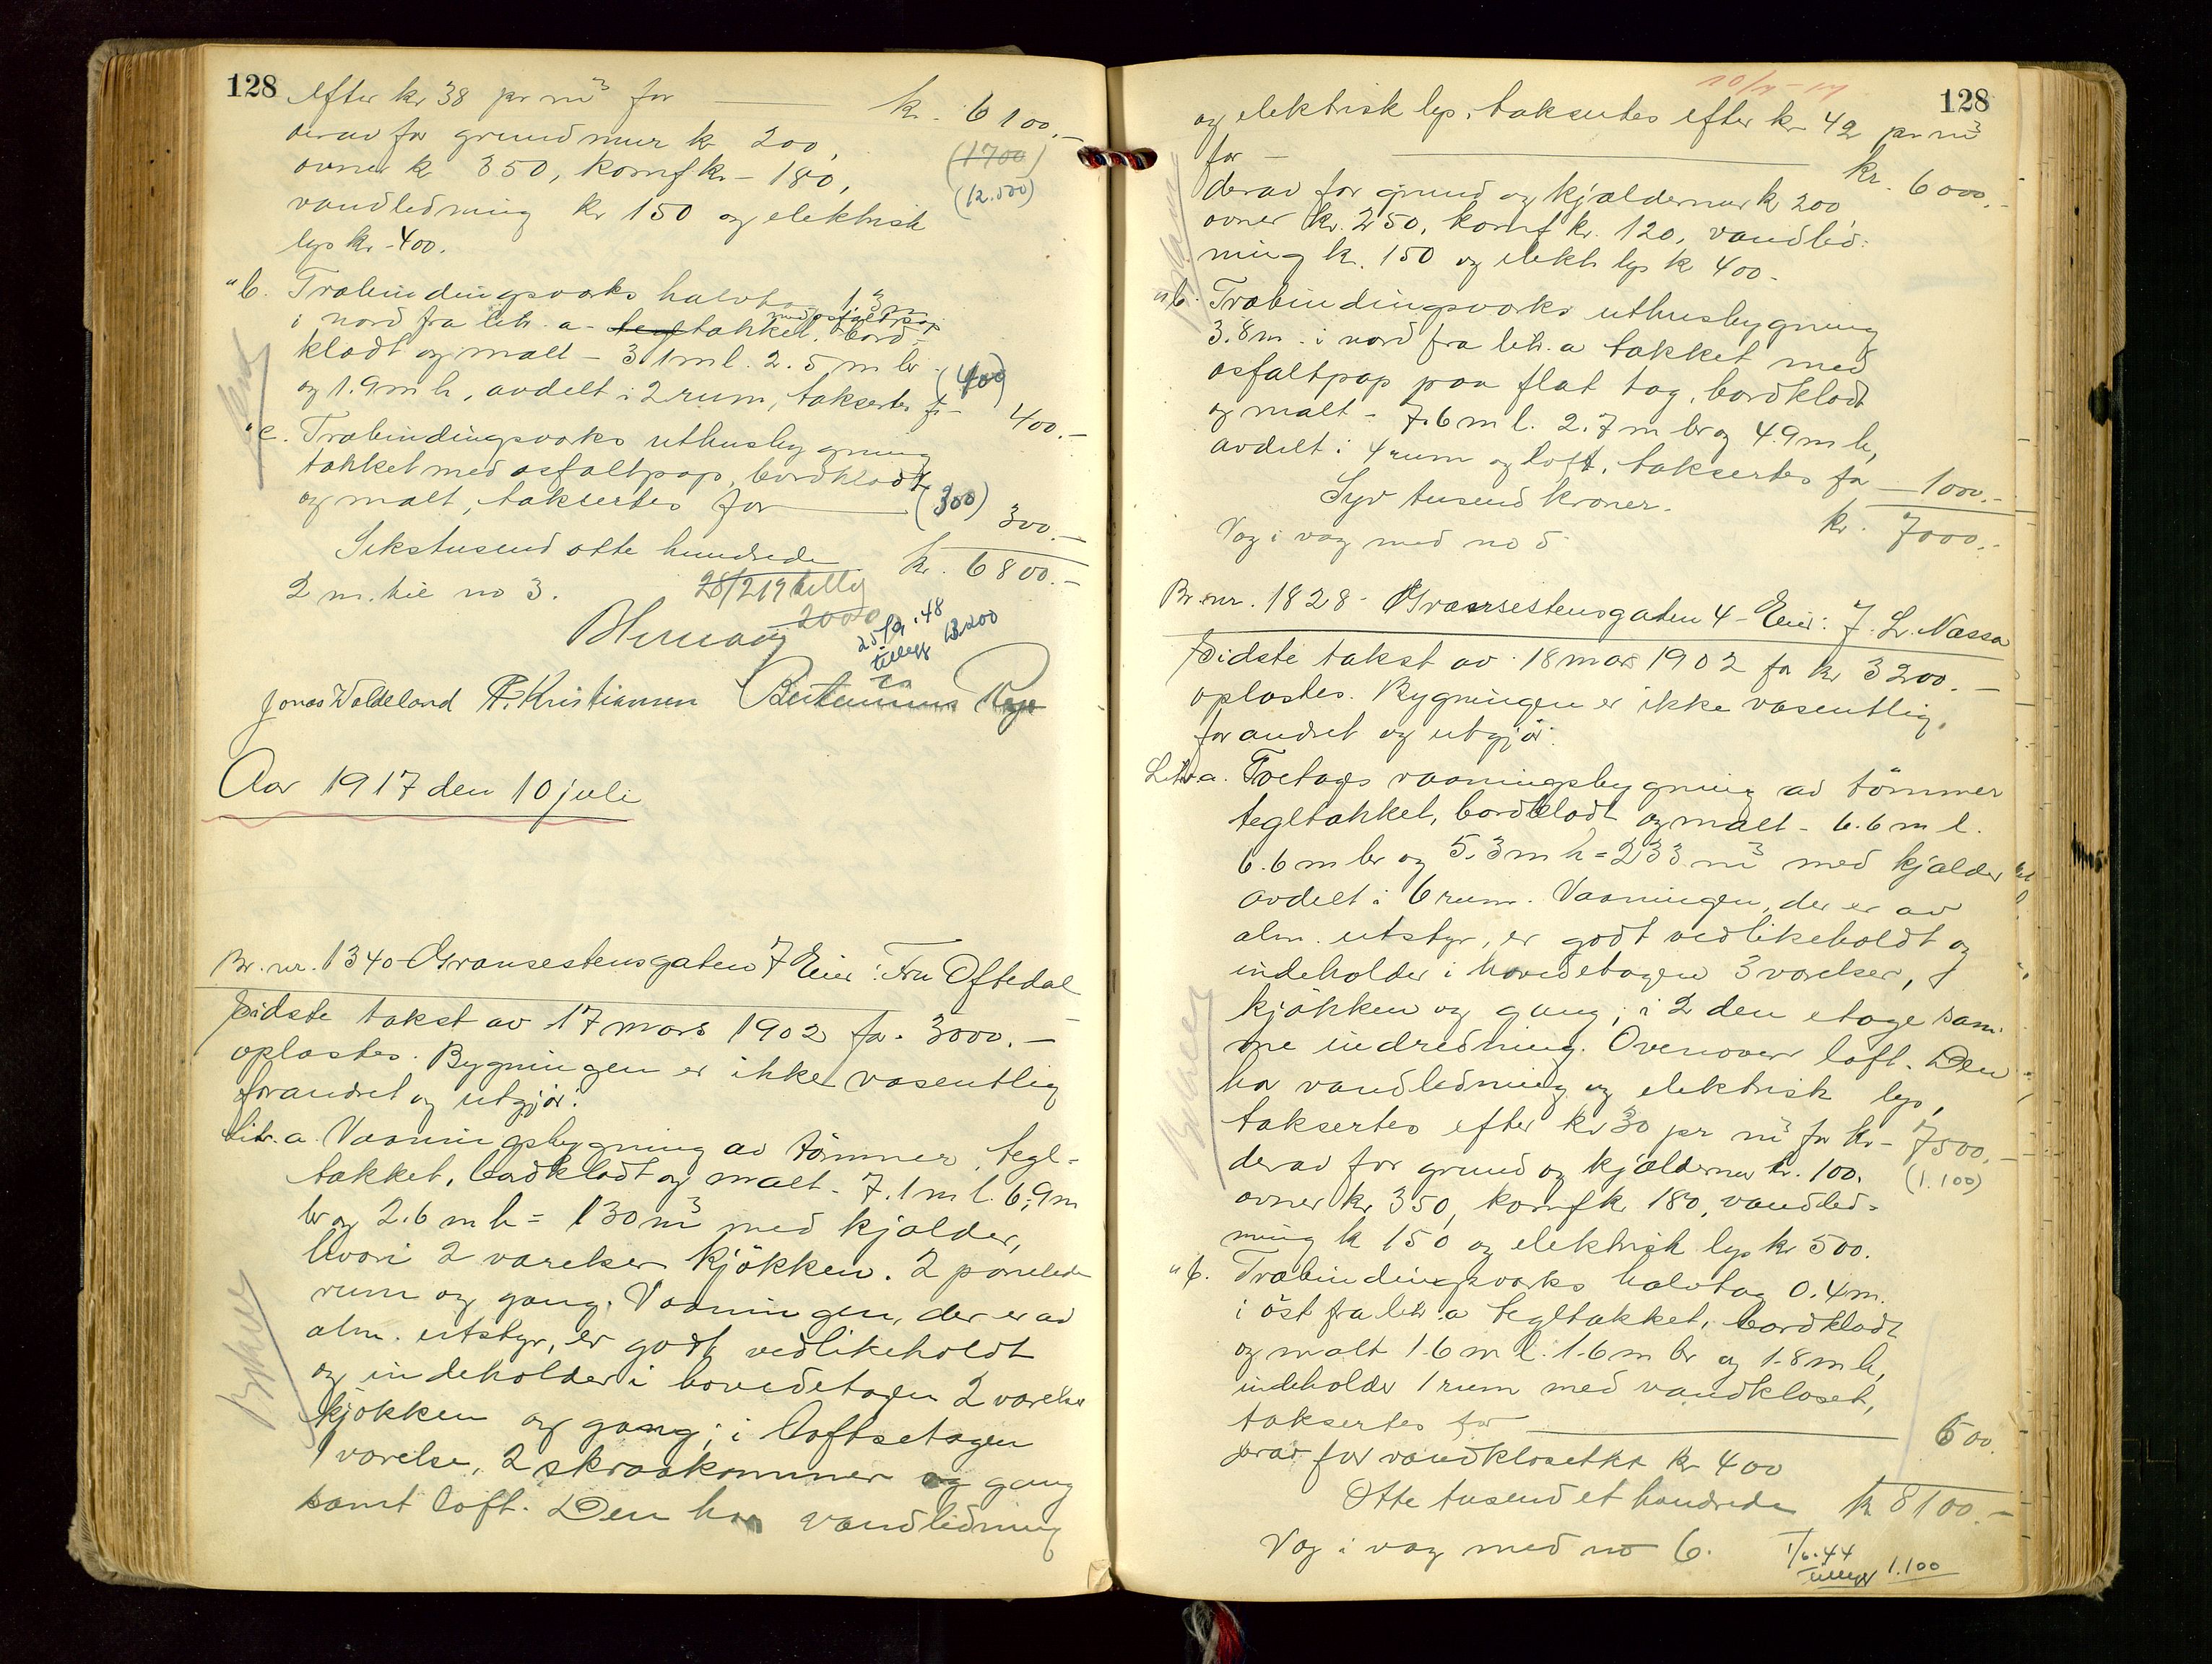 128
efter kr 38 pr m³ for kr. 6100.-
derav for grundmur kr 200, (1700)
ovner kr 350, komf kr - 180, (12.500)
vandledning kr 150 og elektrisk
lys kr - 400.
"b. Træbindingsværks halvtag 1.3 m
i nord fra litr. a - tegl takket med asfaltpap, bord-
klædt og malt - 3.1 m l. 2.5 m br
og 1.9 m h, avdelt i 2 rum, takseres for (400) 400.-
"c. Træbindingsværks uthusbygning
takket med asfaltpap, bordklædt
og malt, takseres for (300) 300.-
Sekstusend otte hundrede kr. 6800.-
2 m. til no 3.
28/2 19 tillæg
2000
25/9.48
tillegg 13.200
Jonas Waldeland F. Kristiansen
Aar 1917 den 10 juli
Br. nr. 1340 Gransestensgaten 7 Eier: Fru Oftedal
Sidste takst av 17 mars 1902 for 3000.-
oplæstes. Bygningen er ikke væsentlig
forandret og utgjør:
Litr. a. Vaaningsbygning av tömmer, tegl-
takket, bordklædt og malt - 7.1 m l. 6.9 m
br og 2.6 m h = 130 m³ med kjælder,
hvori 2 værelser kjökken. 2 panelede
rum og gang. Vaaningen, der er av
alm. utstyr, er godt vedlikeholdt
og indeholder i hovedetagen 2 værelser
kjökken og gang; i loftsetagen
1 værelse, 2 skraakammer og gang
samt loft. Den har vandledning
10/7-17
128
og elektrisk lys, takseres efter kr - 42 pr m³
for - kr. 6000.-
derav for grund og kjældermur kr 200
ovner kr. 250, komf kr. 120, vandled-
ning kr. 150 og elektr lys kr 400 -
"b. Træbindingsværks uthusbygning
3.8 m. i nord fra litr. a takket med
asfaltpap paa flat tag, bordklædt
og malt - 7.6 m l. 2.7 m br og 4.9 m h,
avdelt i 4 rum og loft, takseres for 1000.-
Syv tusend kroner. kr. 7000.-
Væg i væg med no 5
Br. nr. 1828 - Gransestensgaten 4 - Eier: J. L. Næssa
Sidste takst av 18 mars 1902 for kr 3200.-
oplæstes. Bygningen er ikke væsentlig
forandret og utgjør:
Litr a. Toetages vaaningsbygning av tömmer
tegltakket, bordklædt og malt - 6.6 m l.
6.6 m br og 5.3 m h = 233 m³ med kjælder
avdelt i 6 rum. Vaaningen, der er av
alm. utstyr, er godt vedlikeholdt og
indeholder i hovedetagen 3 værelser,
kjökken og gang; i 2 den etage sam-
me indredning. Ovenover loft. Den
har vandledning og elektrisk lys,
takseres efter kr 30 pr m³ for kr - 7500.-
derav for grund og kjældermur kr. 100. (1.100)
ovner kr 350, komf kr 180, vandled-
ning kr 150 og elektrisk lys kr 500.
"b. Træbindingsværks halvtag 0.4 m.
i öst fra litr. a tegltakket, bordklædt
og malt 1.6 m l. 1.6 m br og 1.8 m h,
indeholder 1 rum med vandkloset,
takseres for 600.
derav for vandklosettet kr 400
Otte tusend et hundrede kr 8100.-
Væg i væg med no 6.
1/6.44
tillegg 1.100